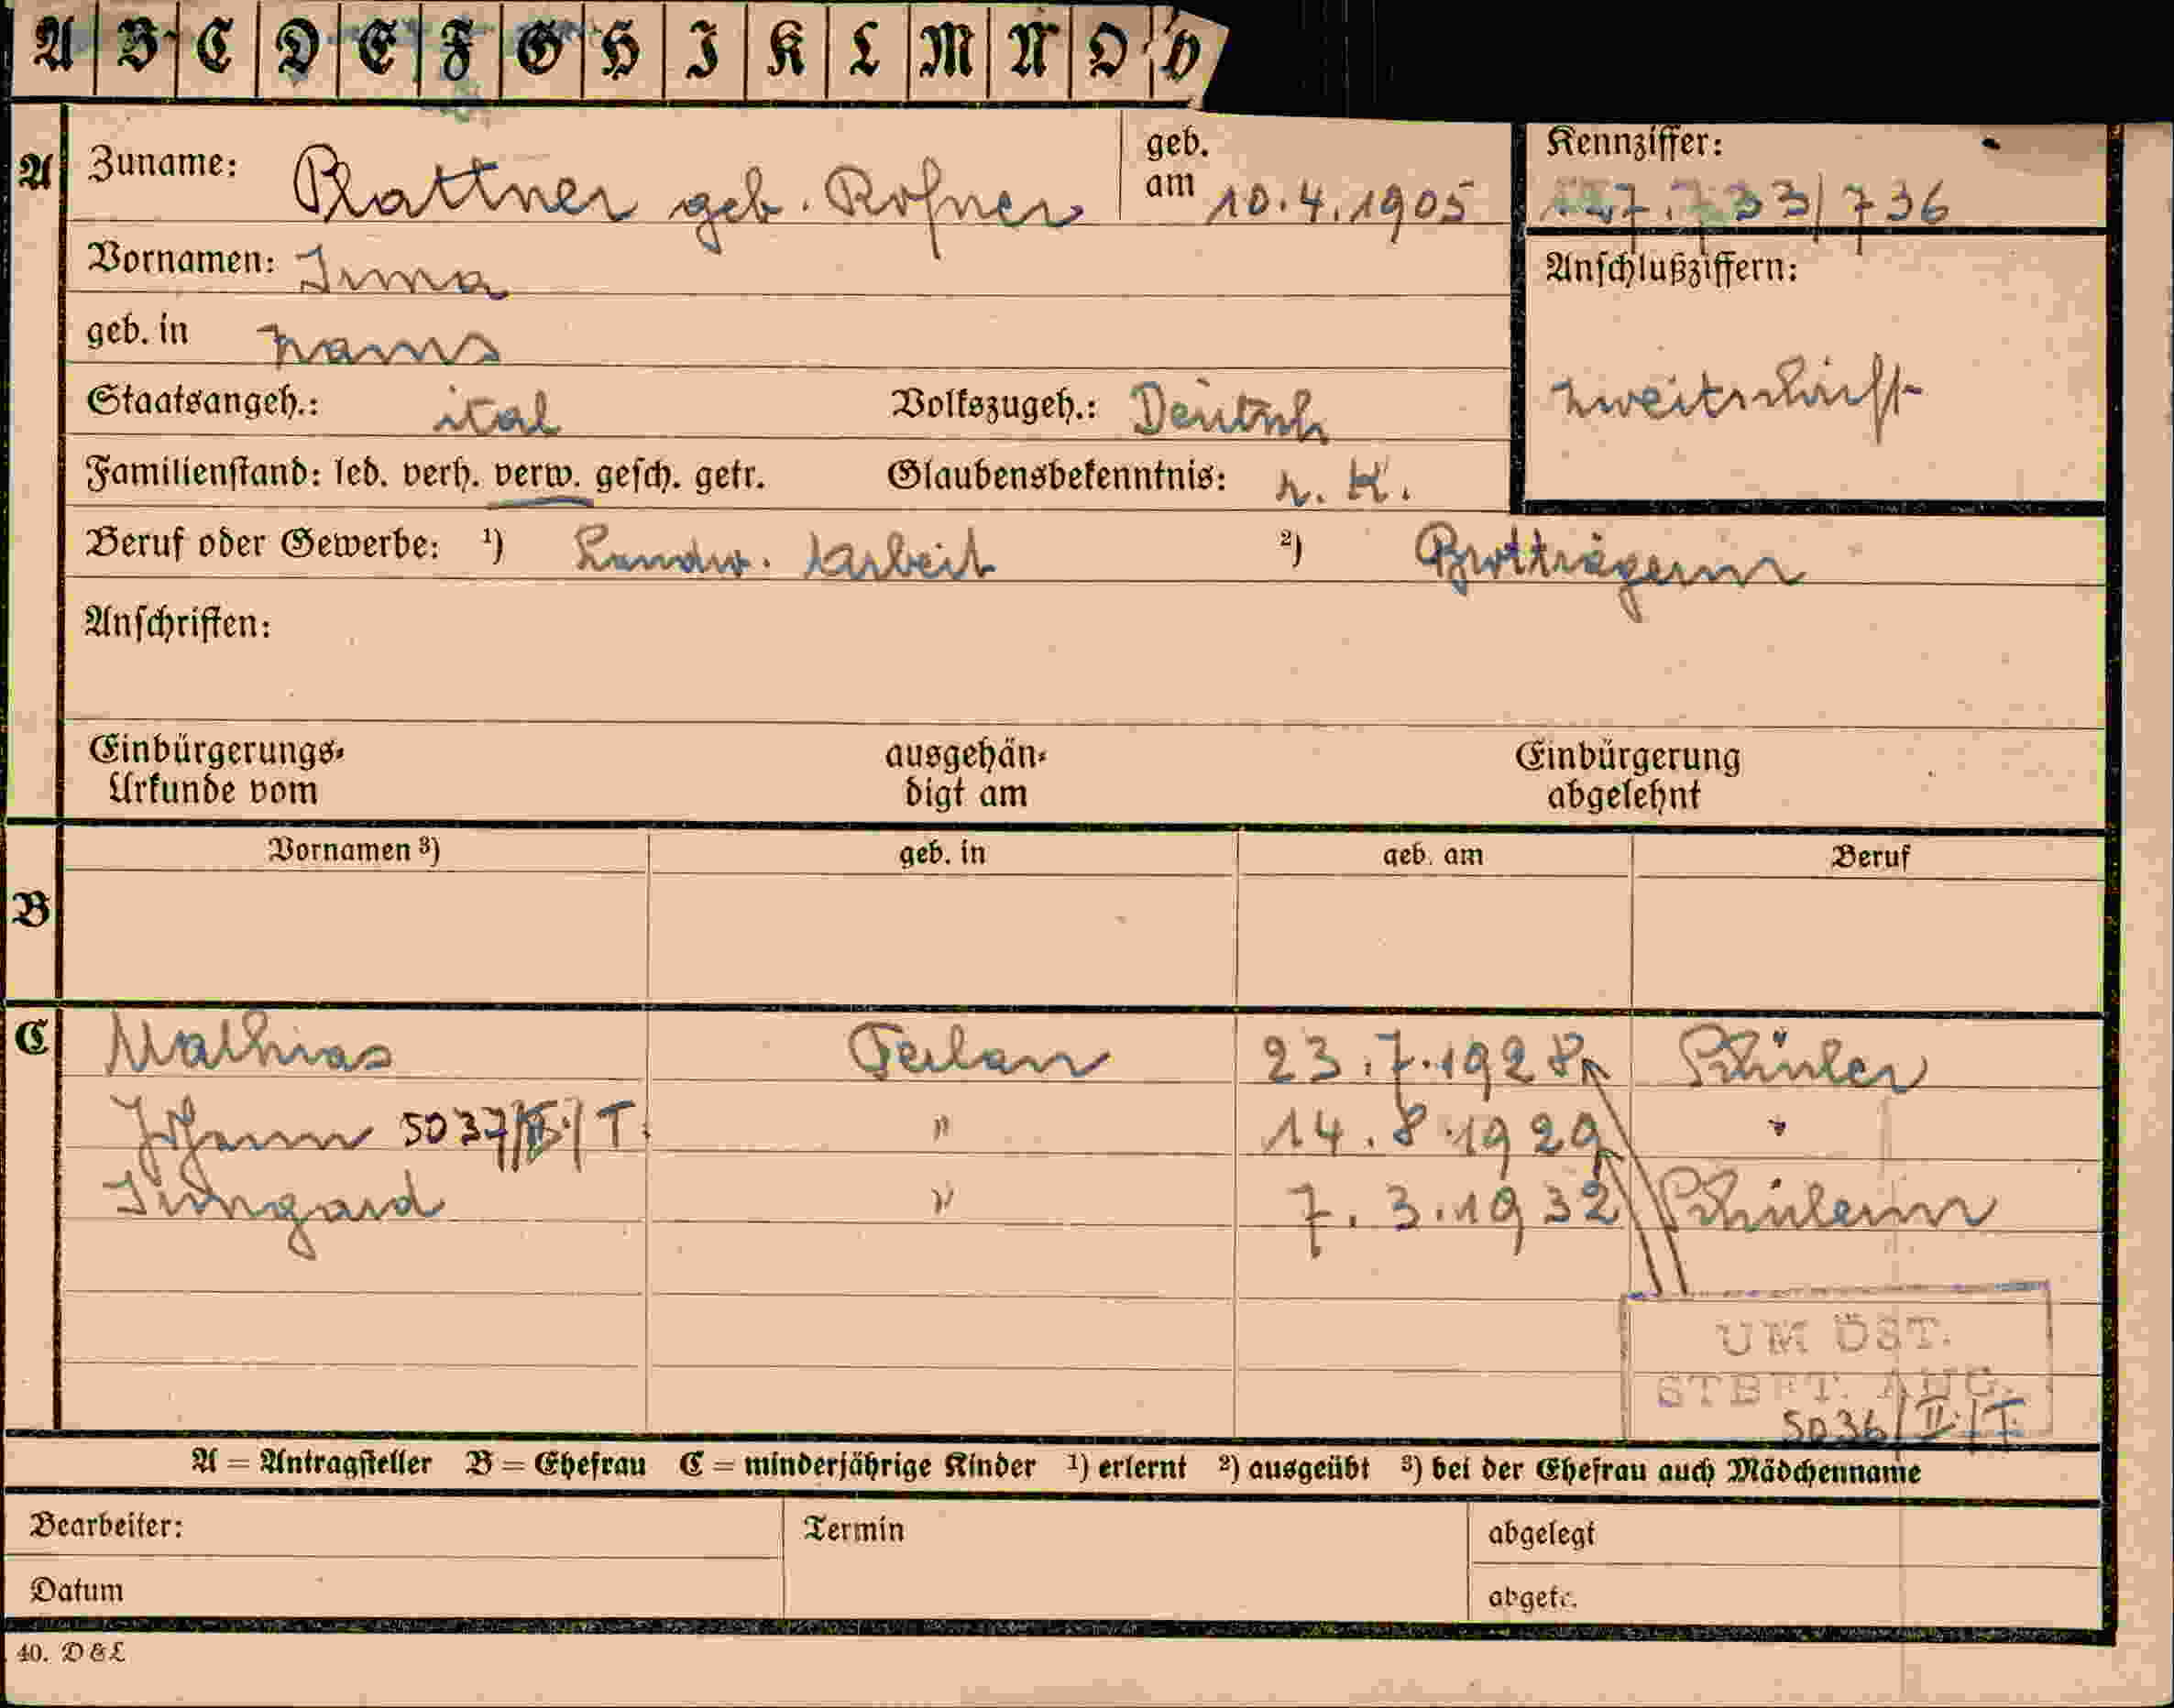 A B C D E F G H I K L M N O
A Zuname: Plattner geb. Rofner geb. am 10.4.1905
Kennziffer: 733/736
Vornamen: Irma
geb. in
Anschlußziffern:
Zweitschrift
Staatsangeh.: ital Volkszugeh.: Deutsch
Familienstand: led. verh. verw. gesch. getr. Glaubensbekenntnis: r. K.
Beruf oder Gewerbe: 1) Landw. Arbeit 2) Brotträgerin
Anschriften:
Einbürgerungs-
Urkunde vom
ausgehän-
digt am
Einbürgerung
abgelehnt
B Vornamen 3) geb. in geb. am Beruf
C Mathias Terlan 23.7.1928 Schüler
Johann 5037/II/T. " 14.8.1929 "
Irmgard " 7.3.1932 Schülerin
UM ÖST.
STBFT. ANG.
5036/II/T
A = Antragsteller B = Ehefrau C = minderjährige Kinder 1) erlernt 2) ausgeübt 3) bei der Ehefrau auch Mädchenname
Bearbeiter: Termin abgelegt
Datum abgetr.
40. D&L